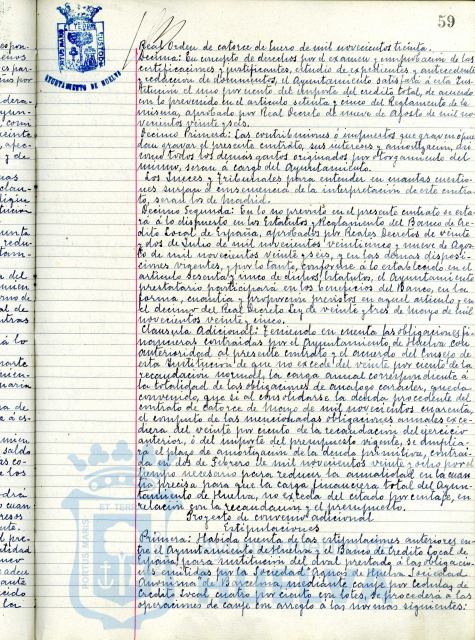 59
AYUNTAMIENTO DE HUELVA
Real Orden de catorce de Enero de mil novecientos treinta.
Décima: En concepto de derechos por el examen y comprobación de las
certificaciones y justificantes, estudio de expedientes y antecedentes
y redacción de documentos, el Ayuntamiento satisfará a esta Ins-
titución el uno por ciento del importe del crédito total, de acuerdo
con lo prevenido en el artículo setenta y cinco del Reglamento de la
misma, aprobado por Real Decreto de nueve de Agosto de mil no-
vecientos veinte y seis.
Décimo Primera: Las contribuciones é impuestos que graven o pue-
dan gravar el presente contrato, sus intereses y amortización, así
como todos los demás gastos originados por otorgamiento del
mismo, serán a cargo del Ayuntamiento.
Los Jueces y Tribunales para entender en cuantas cuestio-
nes surjan a consecuencia de la interpretación de este contra-
to, serán los de Madrid.
Décimo Segunda: En lo no previsto en el presente contrato se esta-
rá a lo dispuesto en los Estatutos y Reglamento del Banco de Cré-
dito Local de España, aprobados por Reales Decretos de veinte
y dos de Julio de mil novecientos veinticinco y nueve de Agos-
to de mil novecientos veinte y seis, y en las demás disposi-
ciones vigentes, y por lo tanto, conforme a lo establecido en el
artículo sesenta y cinco de dichos Estatutos, el Ayuntamiento
prestatario participará en los beneficios del Banco, en la
forma, cuantía y proporción previstos en aquel artículo y en
el décimo del Real Decreto Ley de veinte y tres de Mayo de mil
novecientos veinte y cinco.
Clausula Adicional: Teniendo en cuenta las obligaciones fi-
nancieras contraidas por el Ayuntamiento de Huelva con
anterioridad al presente contrato y el acuerdo del Consejo de
esta Institución de que no exceda del veinte por ciento de la
recaudación normal, la carga anual correspondiente a
la totalidad de las obligaciones de análogo carácter, queda
convenido, que si al consolidarse la deuda procedente del
contrato de catorce de Mayo de mil novecientos cuarenta,
el conjunto de las mencionadas obligaciones anuales exce-
diera del veinte por ciento de la recaudación del ejercicio
anterior, ó del importe del presupuesto vigente, se amplia-
rá el plazo de amortización de la deuda primitiva, contrai-
da en dos de Febrero de mil novecientos veinte y ocho por el
tiempo necesario para reducir la anualidad en la cuan-
tía precisa para que la carga financiera total del Ayun-
tamiento de Huelva, no exceda del citado porcentaje, en
relación con la recaudación y el presupuesto.
Proyecto de convenio adicional
Estipulaciones
Primera: Habida cuenta de las estipulaciones anteriores en-
tre el Ayuntamiento de Huelva y el Banco de Crédito Local de
España, para sustitución del aval prestado a las obligacio-
nes emitidas por la Sociedad "Aguas de Huelva Sociedad
Anónima" de Barcelona, mediante canje por Cédulas de
Crédito Local cuatro por ciento con lotes, se procederá a las
operaciones de canje con arreglo a las normas siguientes: